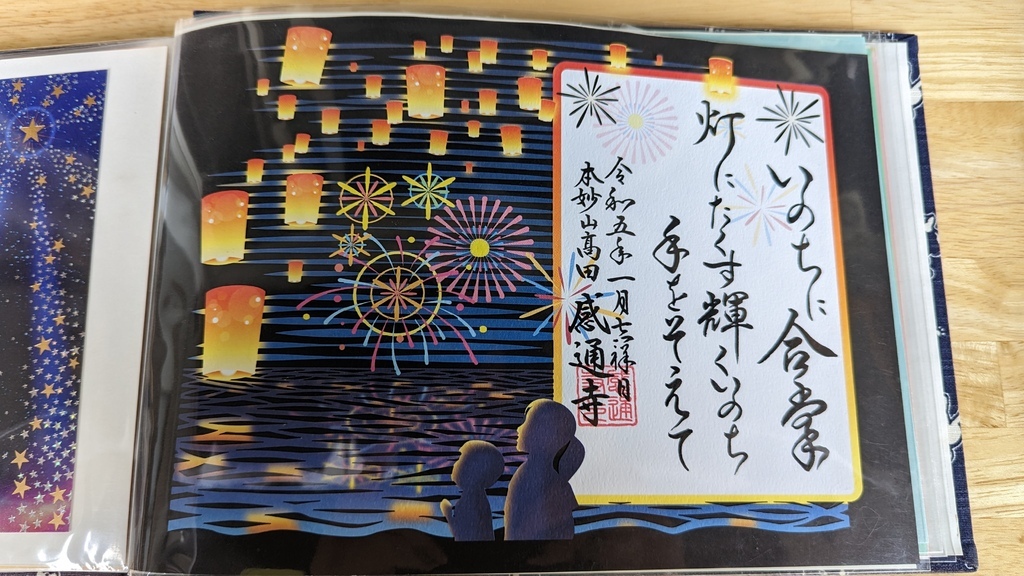 いのちに合掌
灯にたくす輝くいのち
手をそえて
令和五年一月吉祥日
本妙山高田感通寺